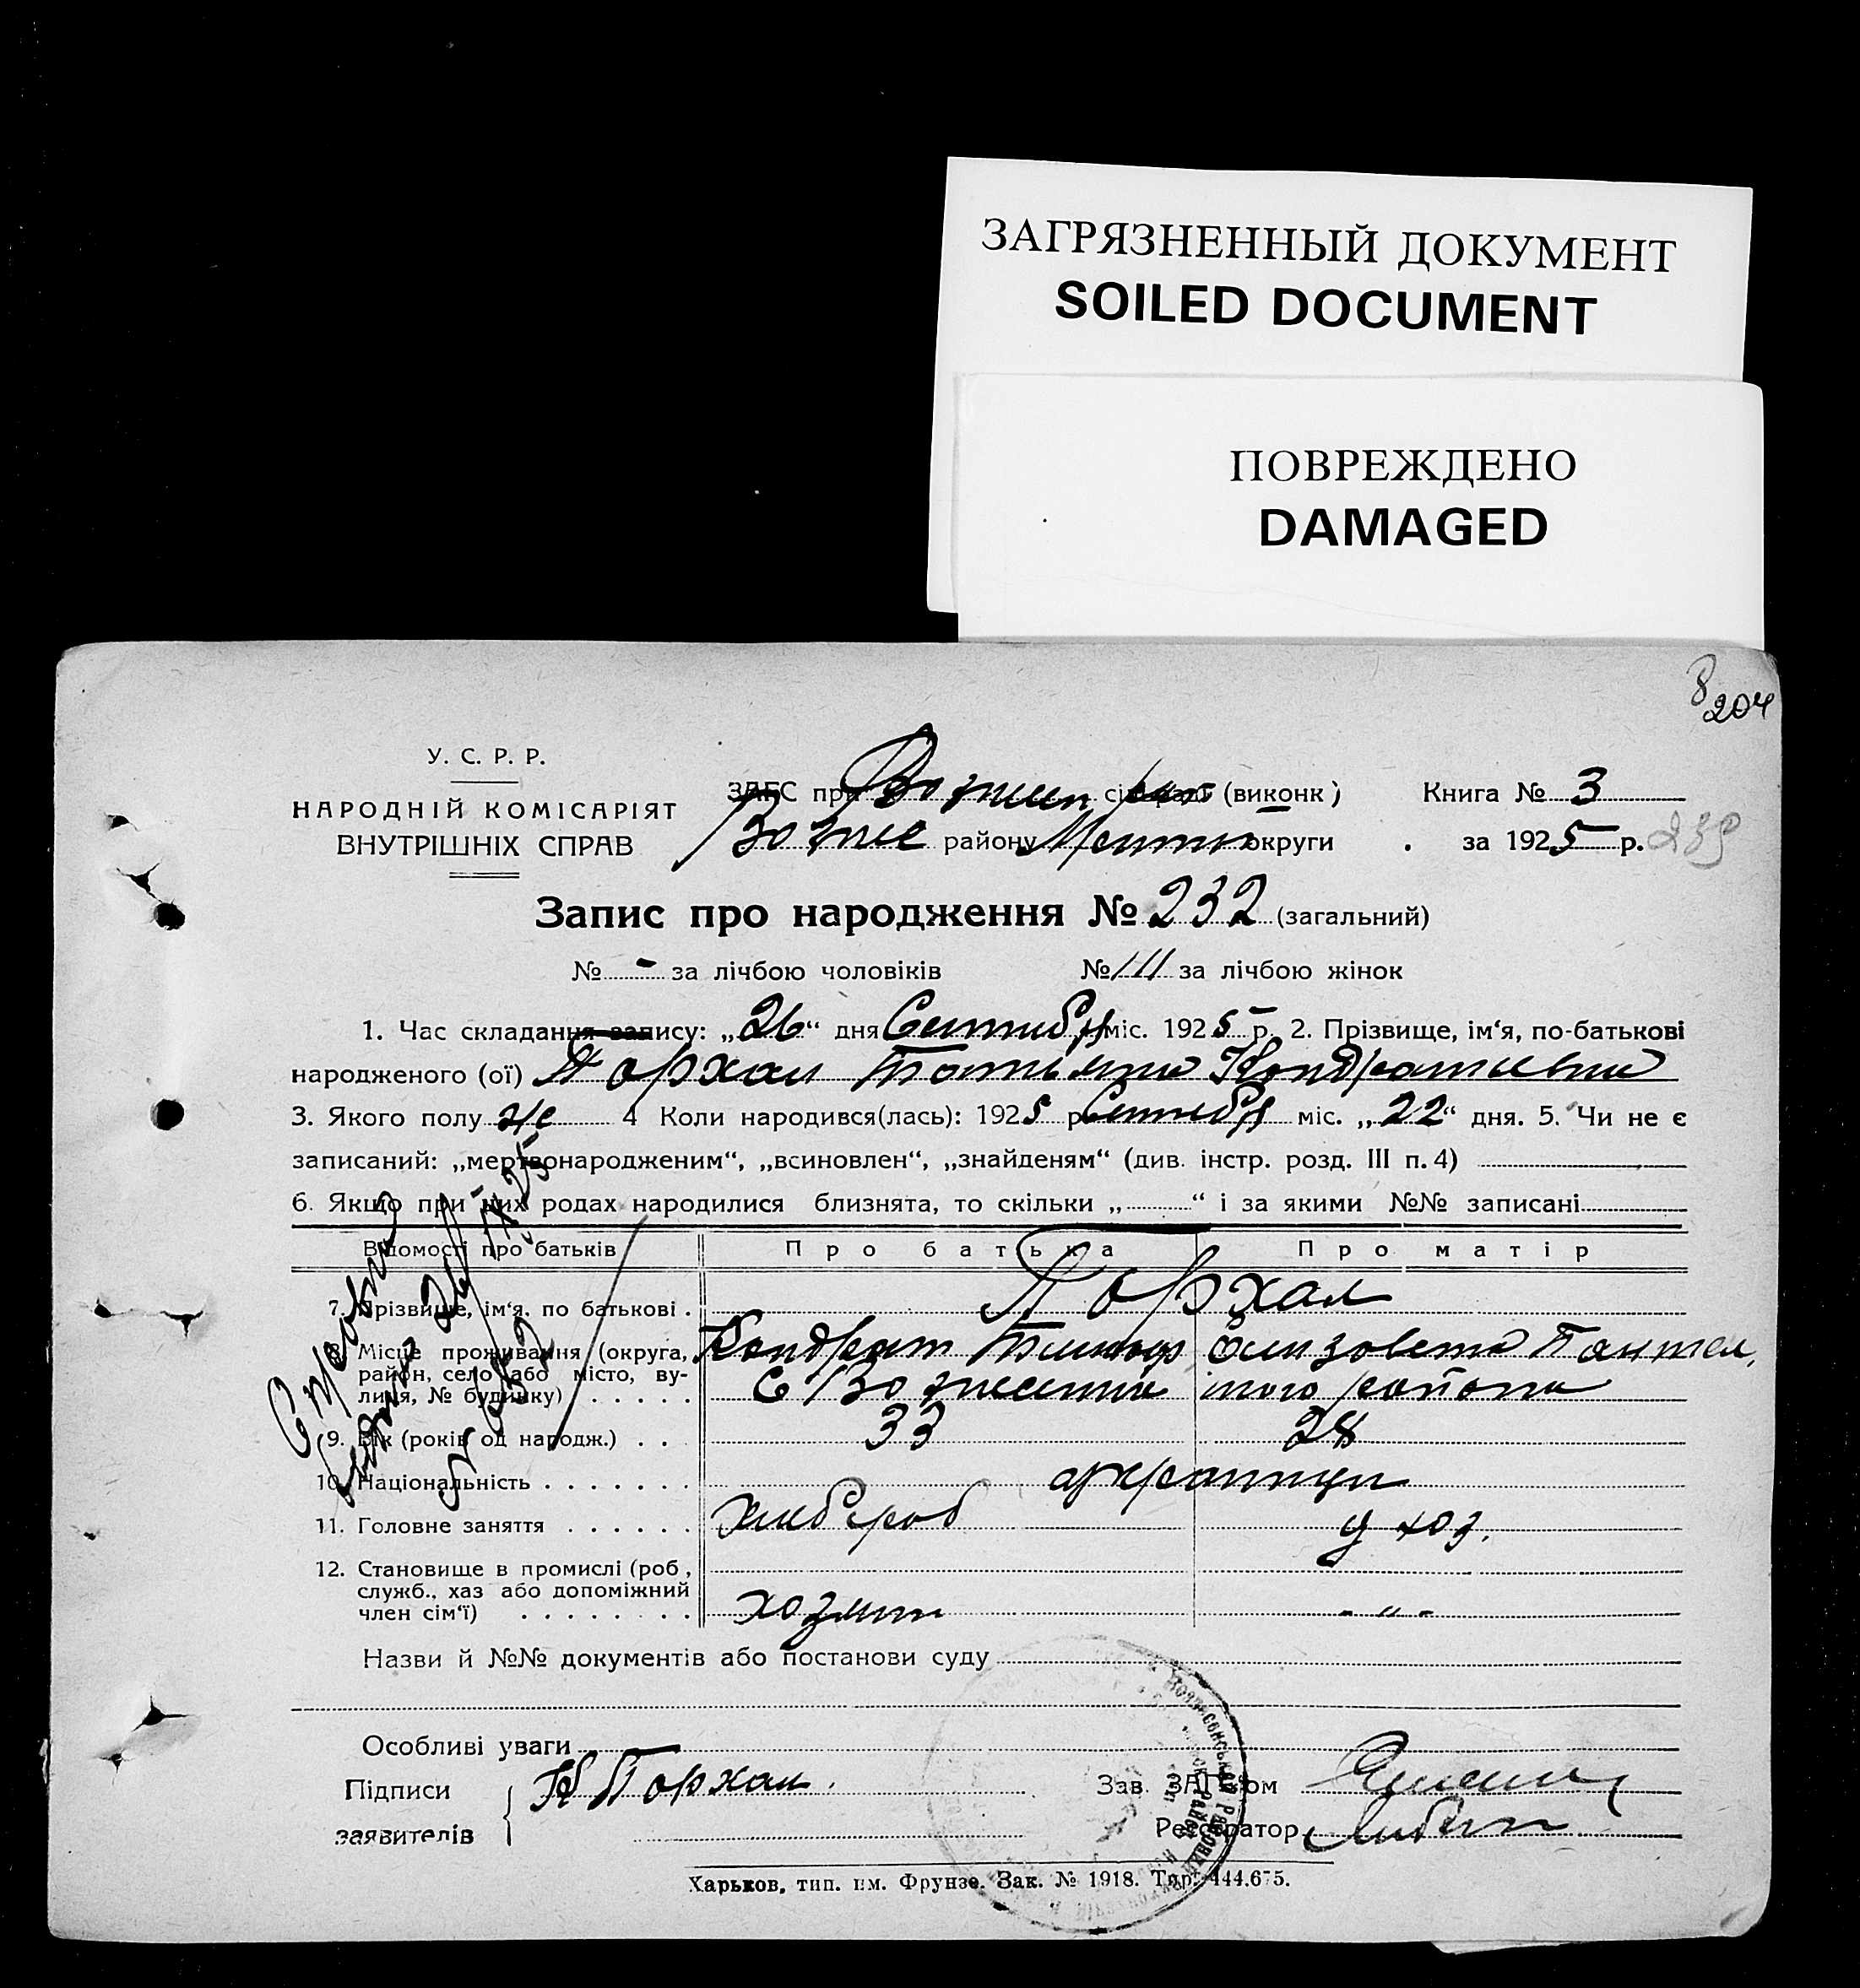 ЗАГРЯЗНЕННЫЙ ДОКУМЕНТ
SOILED DOCUMENT
ПОВРЕЖДЕНО
DAMAGED
8
204
У. С. Р. Р.
НАРОДНІЙ КОМІСАРІЯТ
ВНУТРІШНІХ СПРАВ
ЗАГС при (виконк) Книга № 3
району округи . за 1925 р. 239
Запис про народження № 232 (загальний)
№ - за лічбою чоловіків № 111 за лічбою жінок
1. Час складання запису: „26“ дня Сентября міс. 1925 р. 2. Прізвище, ім‘я, по-батькові
народженого (ої) Порхал Татьяна Кондратьевна
3. Якого полу же 4 Коли народився(лась): 1925 р Сентября міс. „22“ дня. 5. Чи не є
записаний: „мертвонародженим“, „всиновлен“, „знайденям“ (див. інстр. розд. III п. 4)
6. Якщо при цих родах народилися близнята, то скільки „ “ і за якими №№ записані
Відомості про батьків Про батька Про матір
7. Прізвище, ім‘я, по батькові . Порхал
8. Місце проживання (округа, Кондрат Тимоф Елизовета Пантел,
район, село або місто, ву-
лиця, № будинку) . . . . . того района
9. Вік (років од народж.) . . 33 28
10. Національність . . . . . . .
11. Головне заняття . . . . . . хлебороб у хоз.
12. Становище в промислі (роб,
служб., хаз або допоміжний
член сім‘ї) . . . . . . . . хозяин - „ -
Назви й №№ документів або постанови суду
Особливі уваги
Підписи К Порхал. Зав. ЗАГС‘ом
заявителів Реєстратор
Харьков, тип. им. Фрунзе. Зак. № 1918. Тир. 444.675.